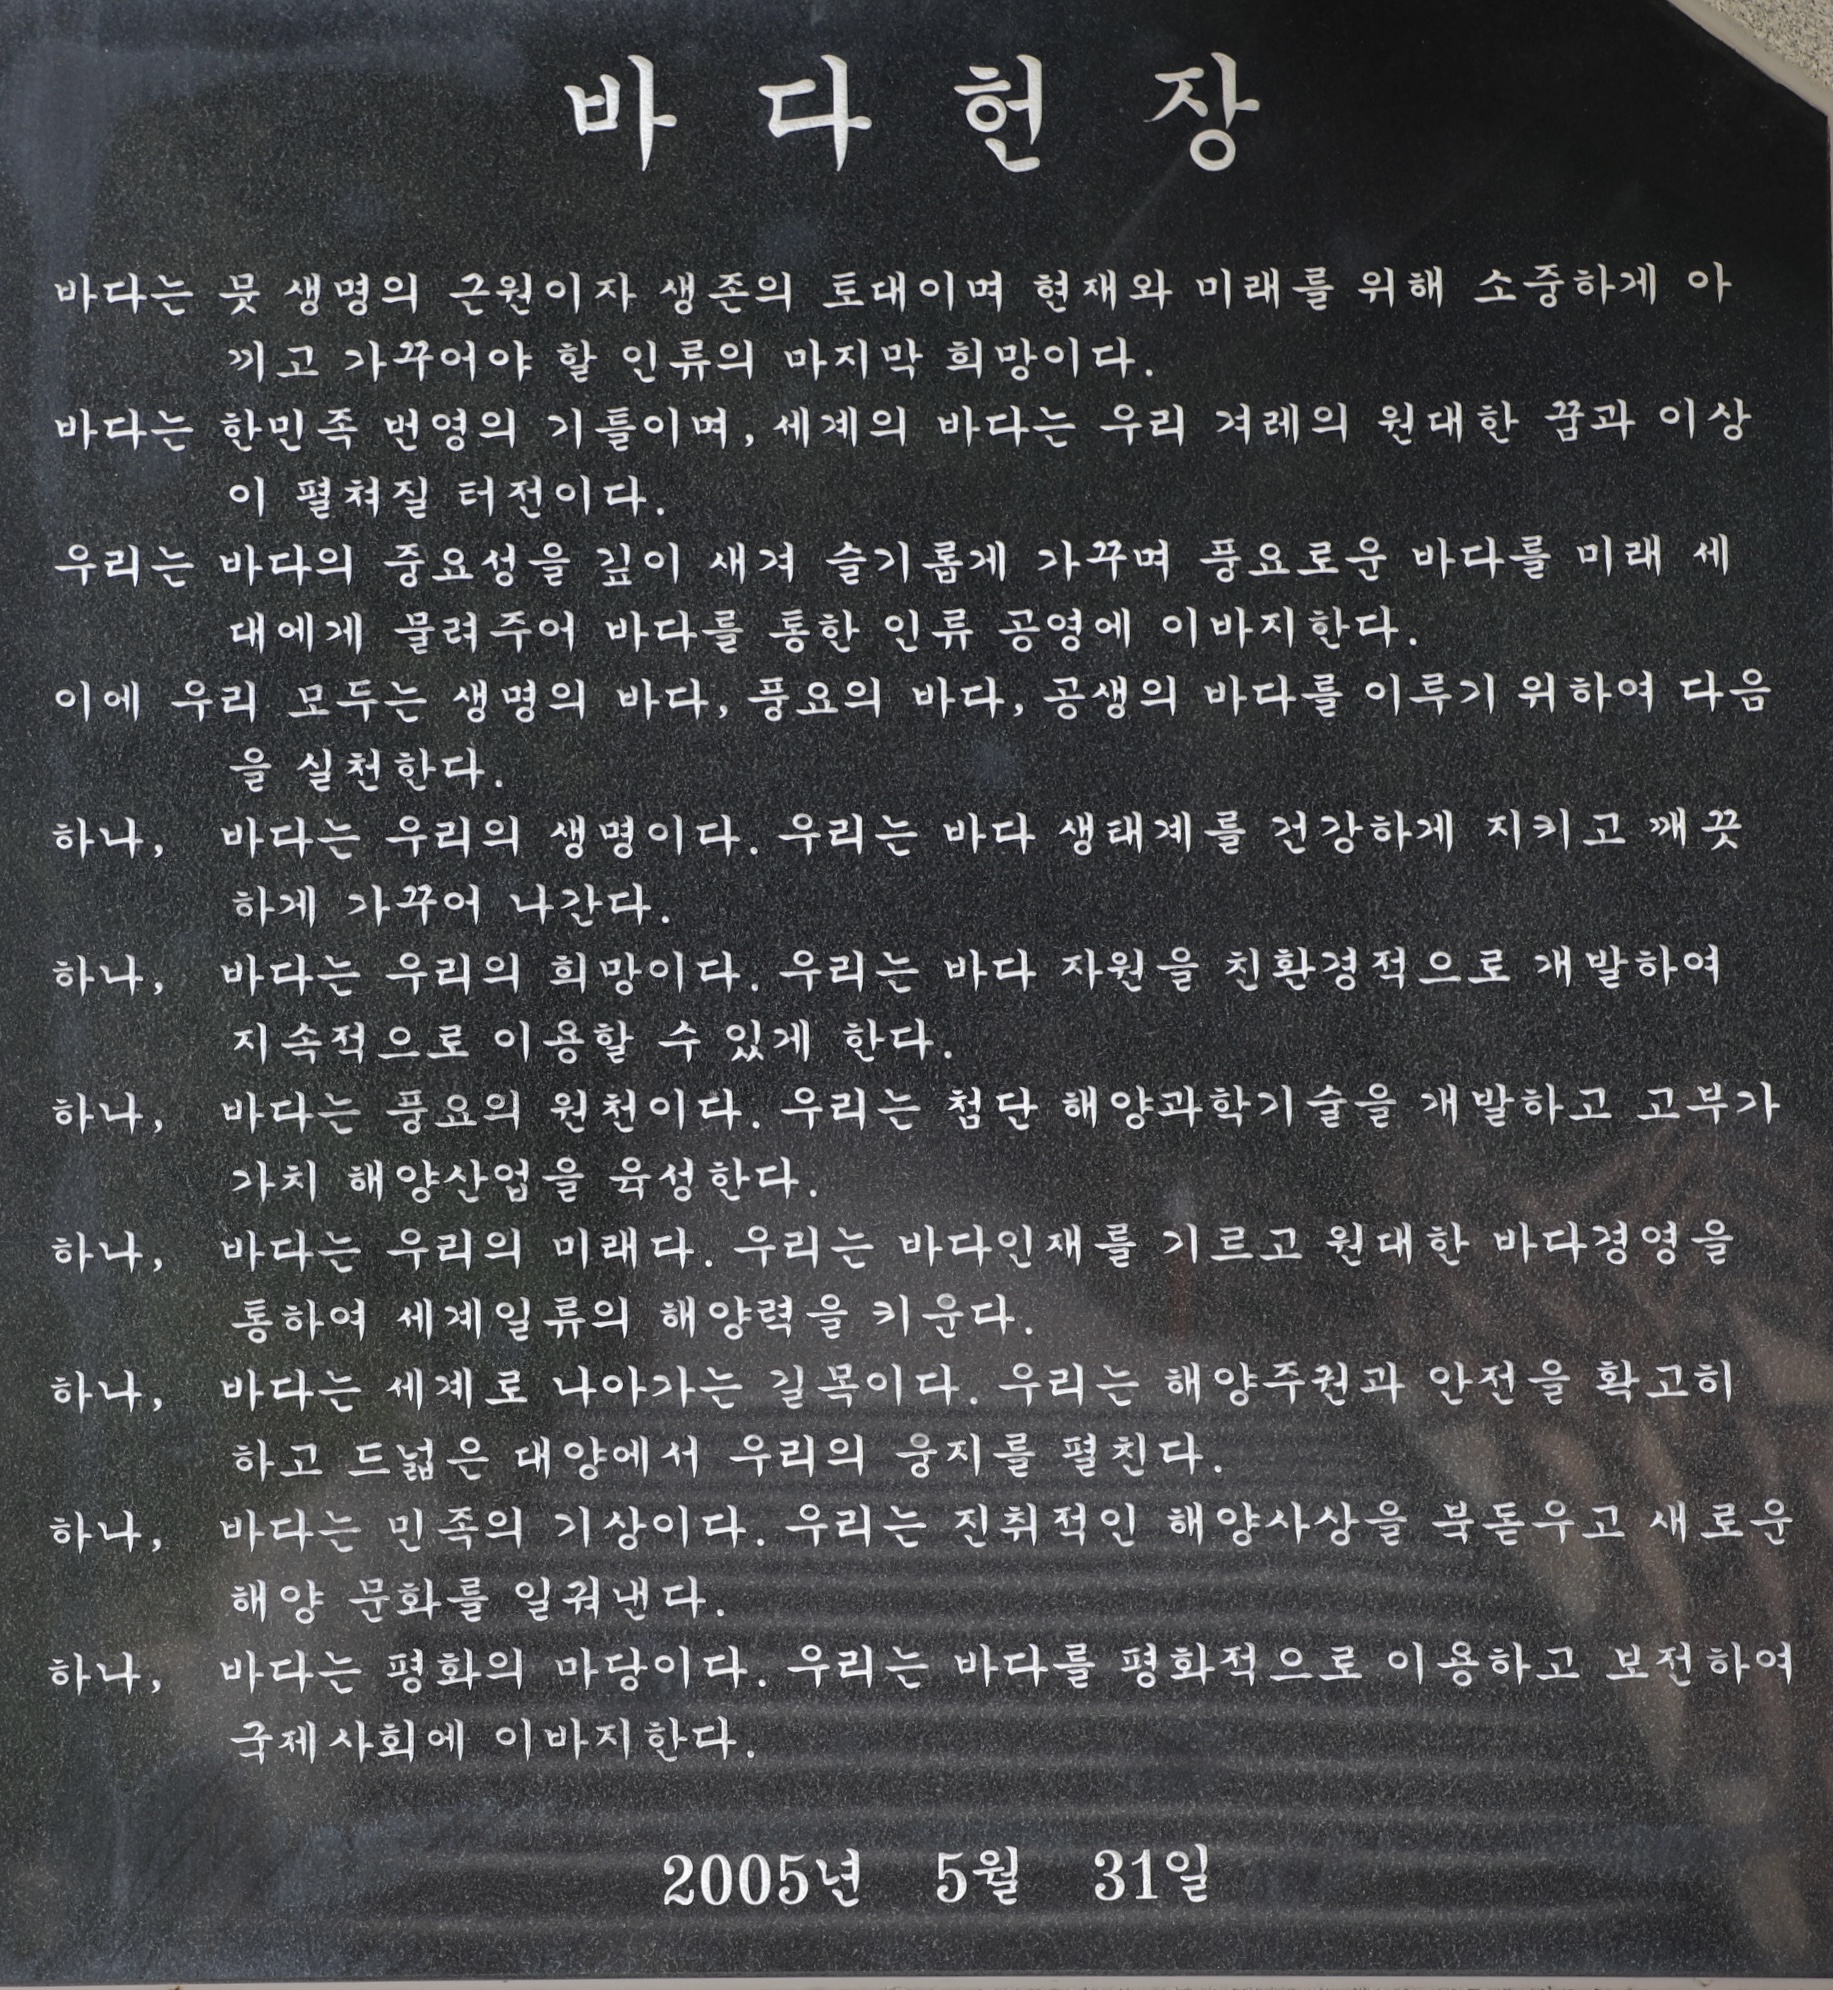 바 다 헌 장
바다는 뭇 생명의 근원이자 생존의 토대이며 현재와 미래를 위해 소중하게 아
끼고 가꾸어야 할 인류의 마지막 희망이다.
바다는 한민족 번영의 기틀이며, 세계의 바다는 우리 겨레의 원대한 꿈과 이상
이 펼쳐질 터전이다.
우리는 바다의 중요성을 깊이 새겨 슬기롭게 가꾸며 풍요로운 바다를 미래 세
대에게 물려주어 바다를 통한 인류 공영에 이바지한다.
이에 우리 모두는 생명의 바다, 풍요의 바다, 공생의 바다를 이루기 위하여 다음
을 실천한다.
하나, 바다는 우리의 생명이다. 우리는 바다 생태계를 건강하게 지키고 깨끗
하게 가꾸어 나간다.
하나, 바다는 우리의 희망이다. 우리는 바다 자원을 친환경적으로 개발하여
지속적으로 이용할 수 있게 한다.
하나, 바다는 풍요의 원천이다. 우리는 첨단 해양과학기술을 개발하고 고부가
가치 해양산업을 육성한다.
하나, 바다는 우리의 미래다. 우리는 바다인재를 기르고 원대한 바다경영을
통하여 세계일류의 해양력을 키운다.
하나, 바다는 세계로 나아가는 길목이다. 우리는 해양주권과 안전을 확고히
하고 드넓은 대양에서 우리의 웅지를 펼친다.
하나, 바다는 민족의 기상이다. 우리는 진취적인 해양사상을 북돋우고 새로운
해양 문화를 일궈낸다.
하나, 바다는 평화의 마당이다. 우리는 바다를 평화적으로 이용하고 보전하여
국제사회에 이바지한다.
2005년 5월 31일